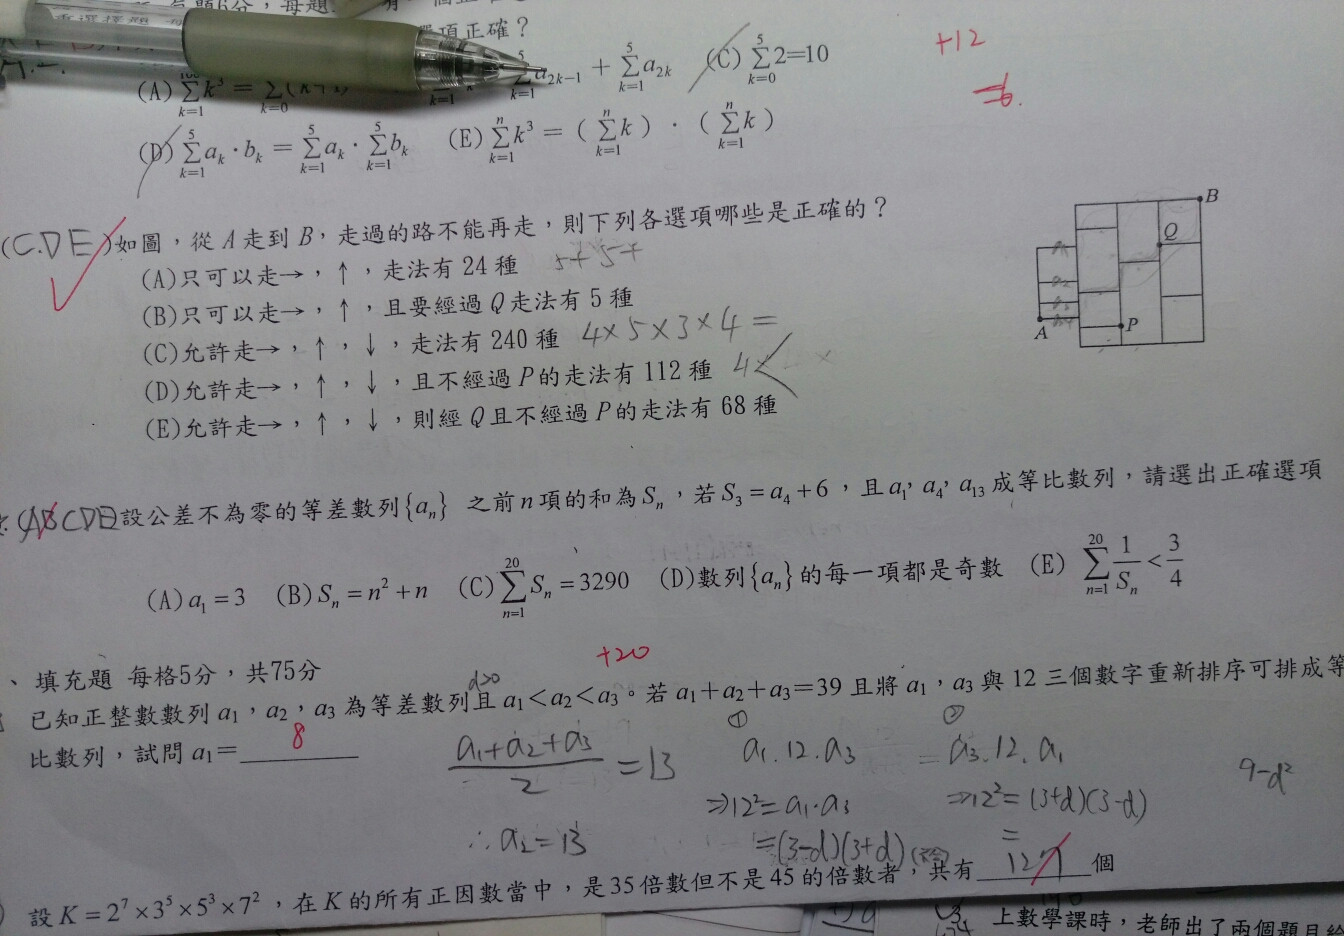 每題6分，每題
項正確？
(A) \sum_{k=1}^{100} k^3 = \sum_{k=0} (k+1) \sum_{k=1}^{5} a_{2k-1} + \sum_{k=1}^{5} a_{2k} (C) \sum_{k=0}^{5} 2=10
+12
(D) \sum_{k=1}^{5} a_k · b_k = \sum_{k=1}^{5} a_k · \sum_{k=1}^{5} b_k (E) \sum_{k=1}^{n} k^3 = ( \sum_{k=1}^{n} k ) · ( \sum_{k=1}^{n} k )
(C.D E)如圖，從 A 走到 B，走過的路不能再走，則下列各選項哪些是正確的？
(A)只可以走→，↑，走法有 24 種
(B)只可以走→，↑，且要經過 Q 走法有 5 種
(C)允許走→，↑，↓，走法有 240 種 4×5×3×4=
(D)允許走→，↑，↓，且不經過 P 的走法有 112 種 4×
(E)允許走→，↑，↓，則經 Q 且不經過 P 的走法有 68 種
B
Q
P
A
(ABCDE)設公差不為零的等差數列{a_n} 之前 n 項的和為 S_n，若 S_3 = a_4 + 6，且 a_1, a_4, a_13 成等比數列，請選出正確選項
(A) a_1 = 3 (B) S_n = n^2 + n (C) \sum_{n=1}^{20} S_n = 3290 (D)數列{a_n}的每一項都是奇數 (E) \sum_{n=1}^{20} \frac{1}{S_n} < \frac{3}{4}
+20
、填充題 每格5分，共75分
d>0
已知正整數數列 a_1，a_2，a_3 為等差數列且 a_1 < a_2 < a_3。若 a_1 + a_2 + a_3 = 39 且將 a_1，a_3 與 12 三個數字重新排序可排成等
比數列，試問 a_1 = 8
\frac{a_1+a_2+a_3}{2} = 13
∴a_2=13
① a_1.12.a_3
⇒12²=a_1·a_3
=(3-d)(3+d)
② = a_3.12.a_1
⇒12²=(3+d)(3-d)
=
9-d²
設 K = 2^7 × 3^5 × 5^3 × 7^2，在 K 的所有正因數當中，是 35 倍數但不是 45 的倍數者，共有 個
上數學課時，老師出了兩個題目給